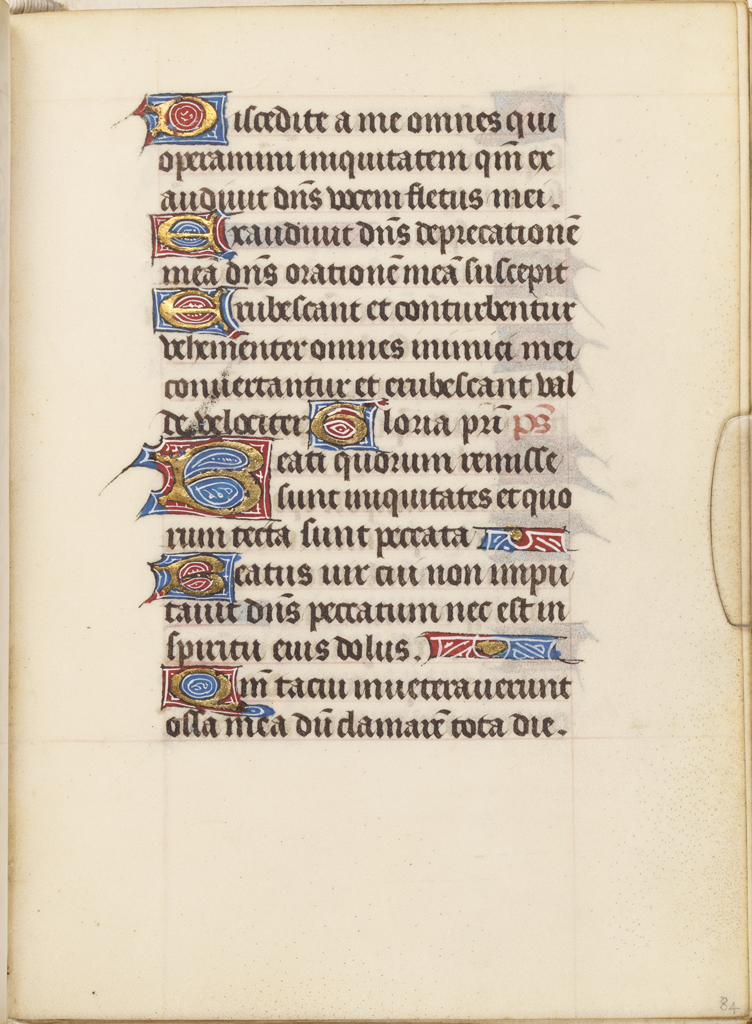 Discedite a me omnes qui
operamini iniquitatem qm̄ ex
audiuit dn̄s vocem fletus mei.
Exaudiuit dn̄s deprecationē
meā dn̄s orationē meā suscepit
Erubescant et conturbentur
vehementer omnes inimici mei
conuertantur et erubescant val
de velociter Gloria pr̄i ps̄
Beati quorum remisse
sunt iniquitates et quo
rum tecta sunt peccata
Beatus uir cui non impu
tauit dn̄s peccatum nec est in
spiritu euis dolus.
Qm̄ tacui inueterauerunt
ossa mea dū clamarē tota die.
84